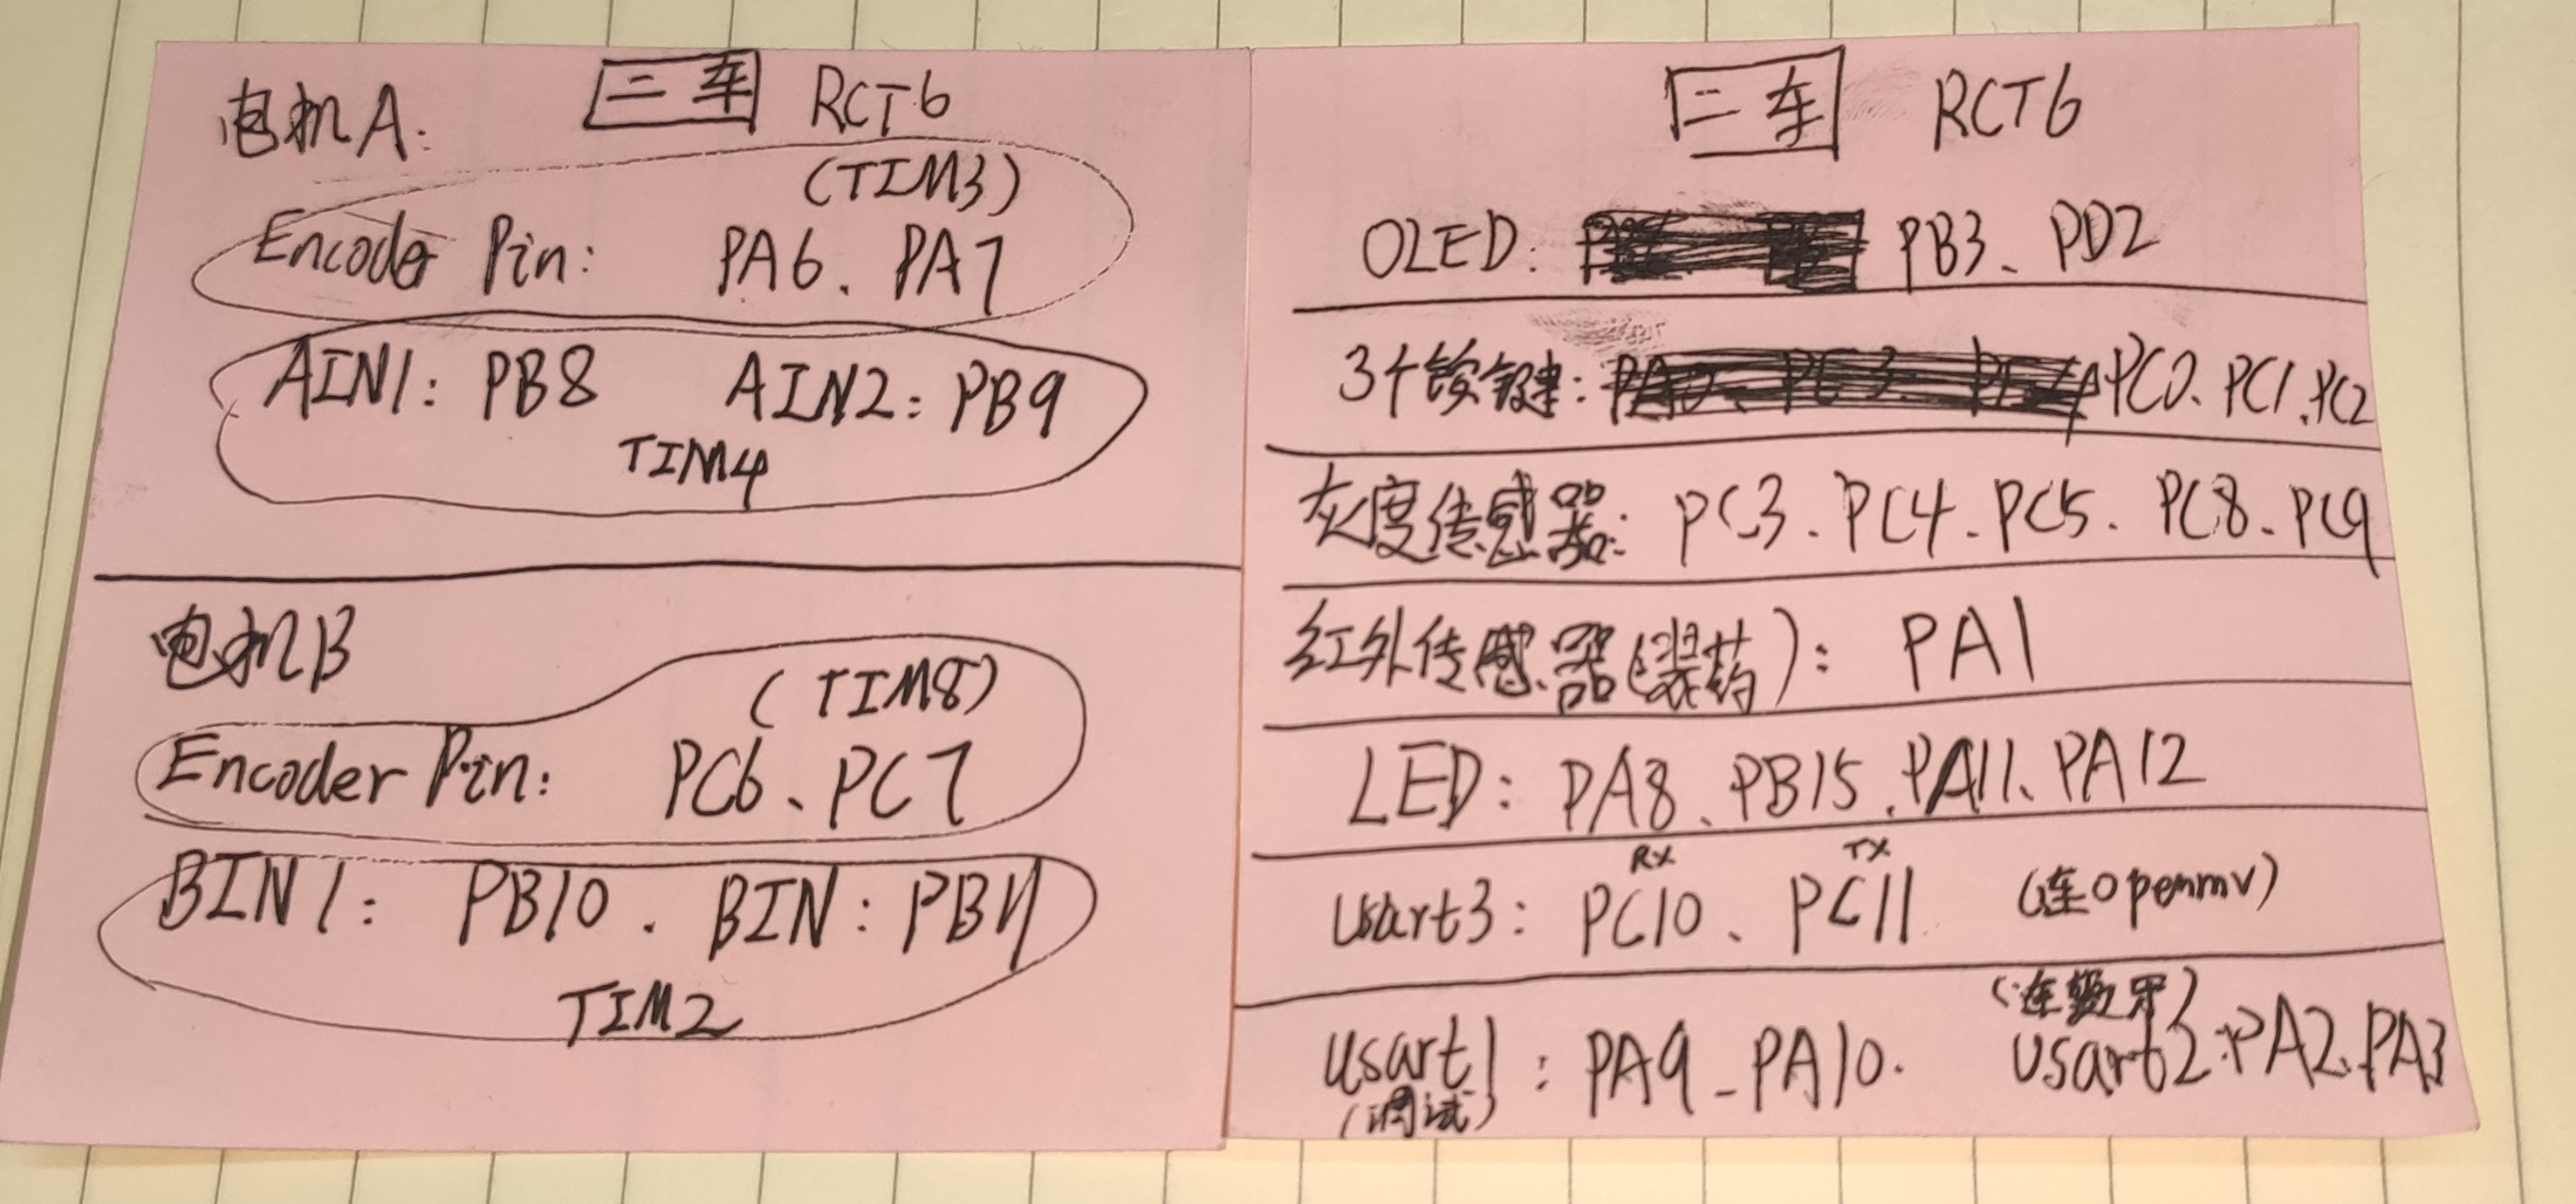 电机A: 二车 RCT6
(TIM3)
Encoder Pin: PA6、PA7
AIN1: PB8 AIN2: PB9
TIM4
电机B
(TIM8)
Encoder Pin: PC6、PC7
BIN1: PB10. BIN: PB11
TIM2
二车 RCT6
OLED: PB3、PD2
3个按键: PC0、PC1、PC2
灰度传感器: PC3、PC4、PC5、PC8、PC9
红外传感器(装药): PA1
LED: PA8、PB15、PA11、PA12
RX TX
Usart3: PC10、PC11 (连openmv)
(连蓝牙)
Usart1: PA9、PA10. Usart2: PA2、PA3
(调试)